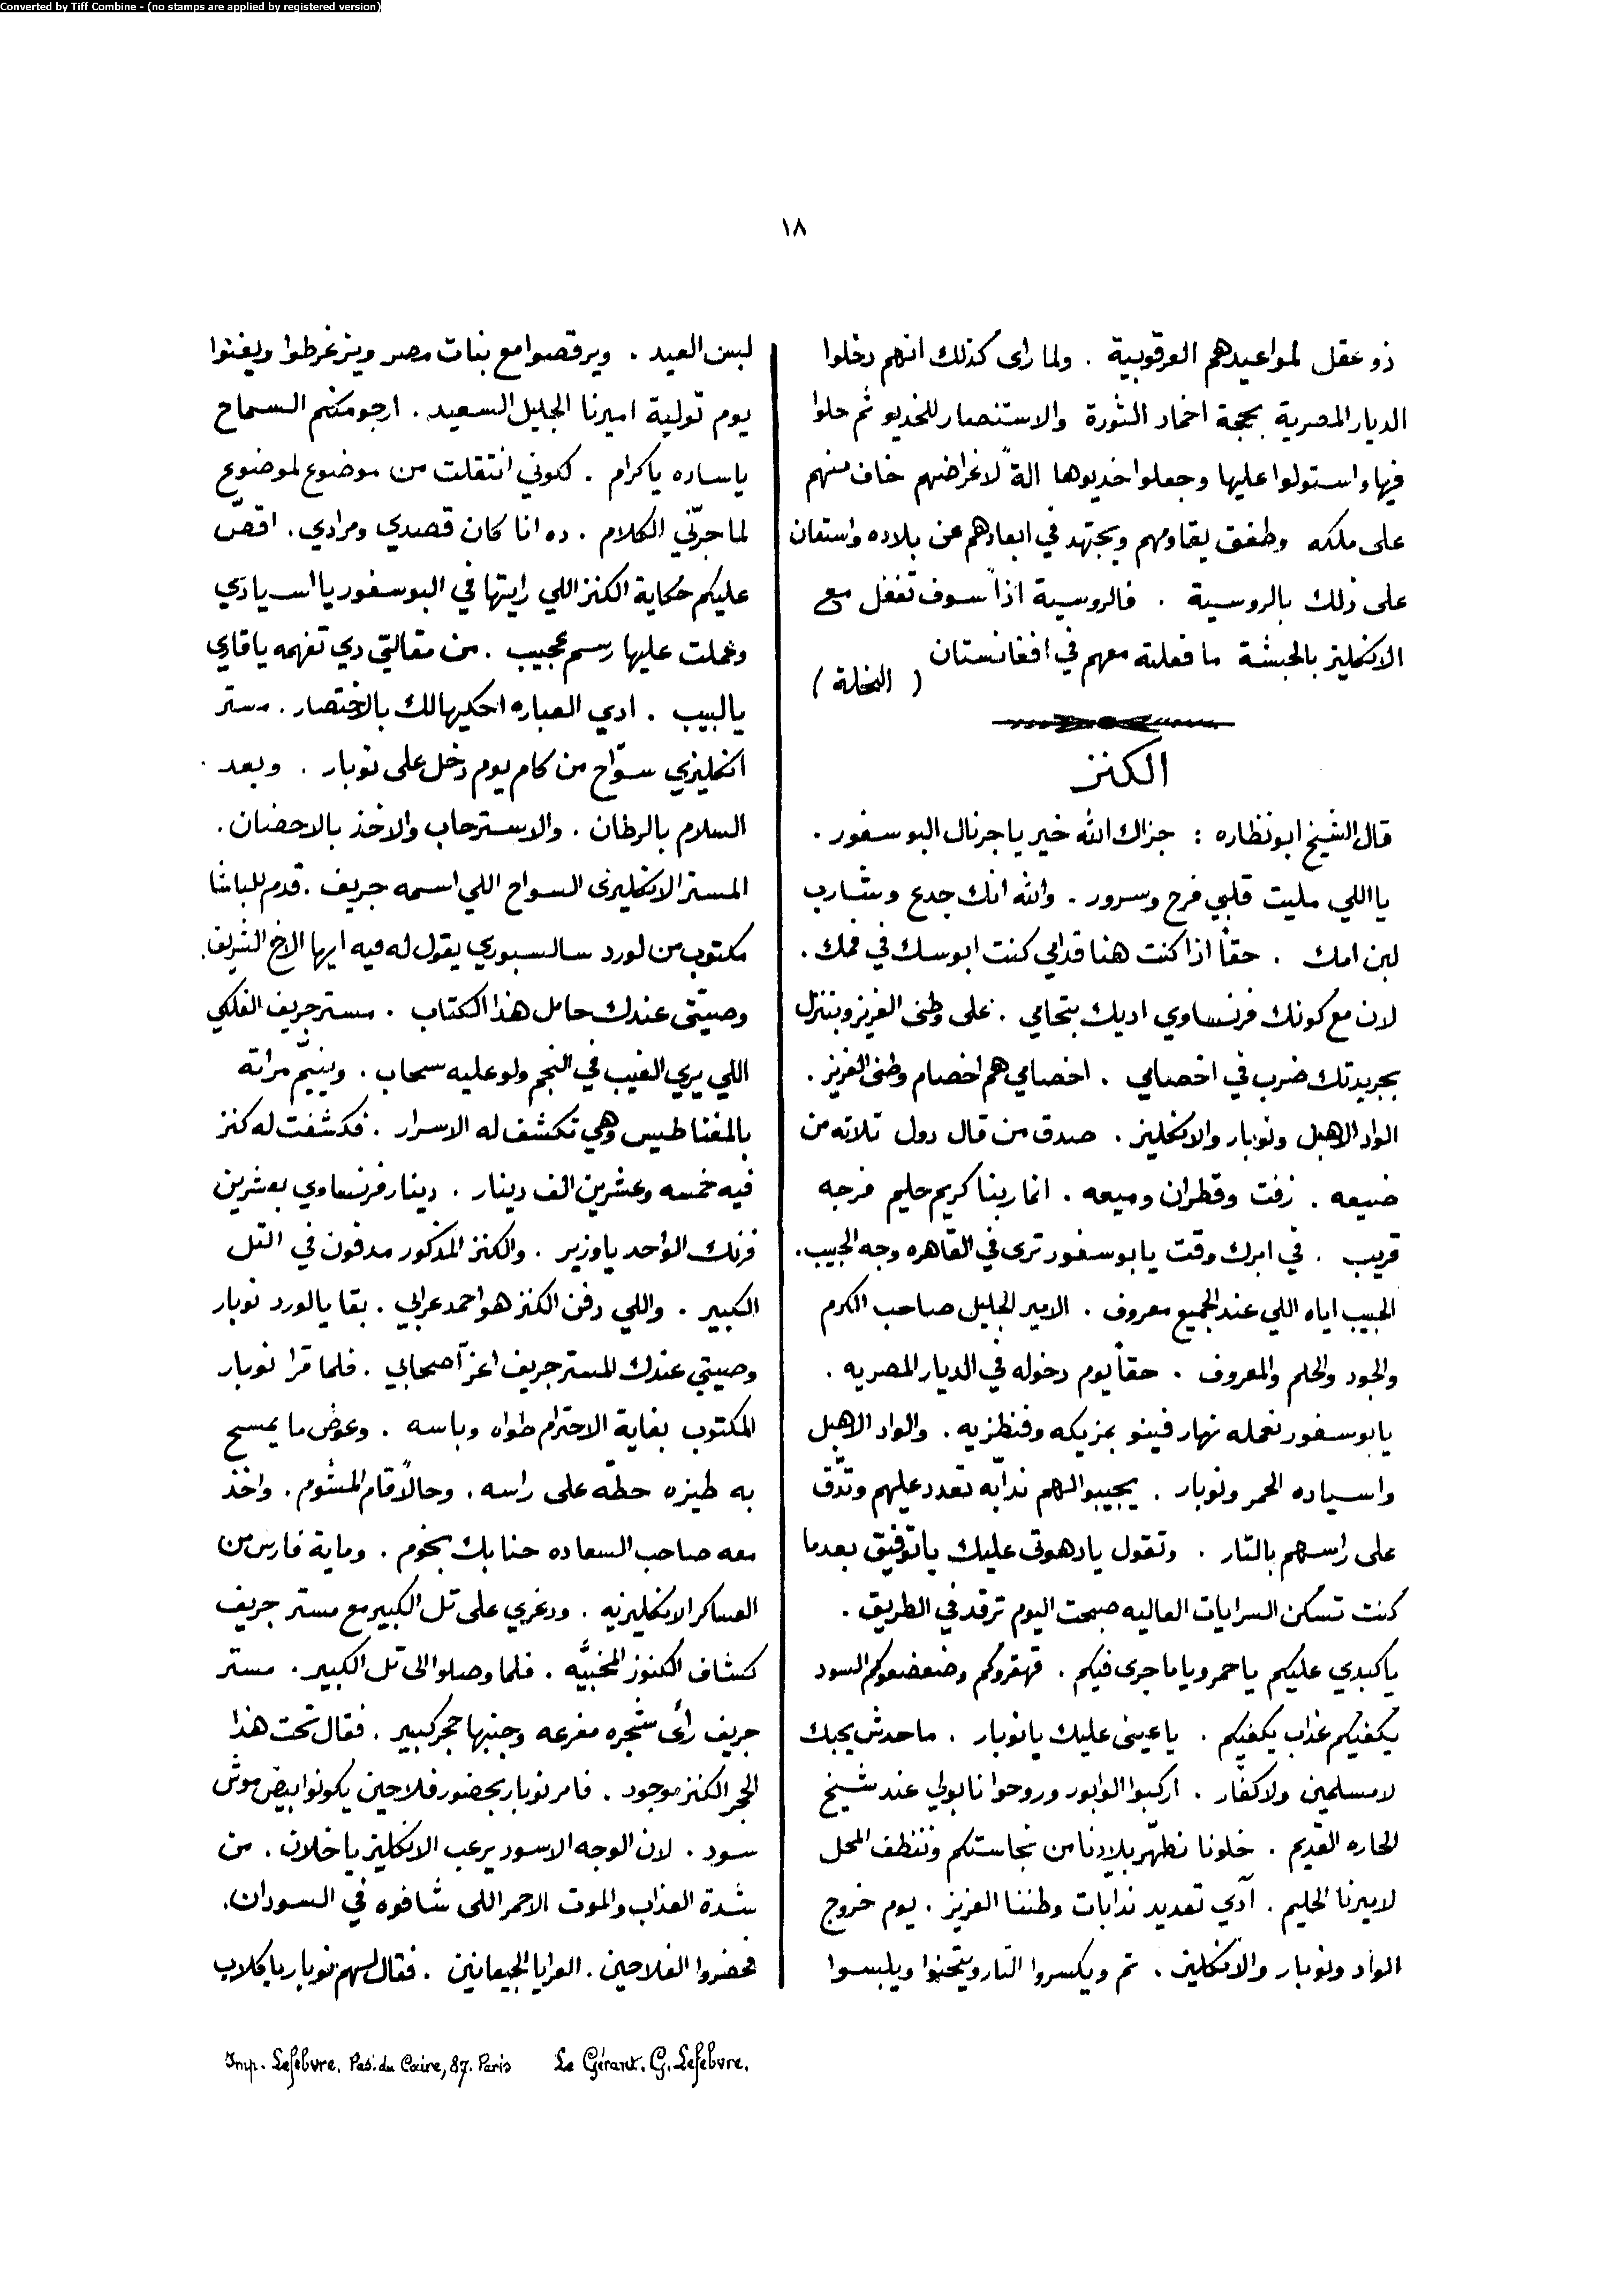 Converted by Tiff Combine - (no stamps are applied by registered version)
١٨
ذو عقل لمواعيدهم العرقوبية . ولما راى كذلك انهم دخلوا
الديار المصرية بحجة اخماد الثورة والاستنصار للخديو ثم حلوا
فيها واستولوا عليها وجعلوا خديوها الةً لاغراضهم خاف منهم
على ملكه وطفق يقاومهم ويجتهد في ابعادهم عن بلاده واستعان
على ذلك بالروسية . فالروسية اذاً سوف تفعل مع
الانكليز بالحبشة ما فعلته معهم في افغانستان
( النحلة )
الكنز
قال الشيخ ابونظاره : جزاك الله خير يا جرنال البوسفور .
يا اللي مليت قلبي فرح وسرور . والله انك جدع وشارب
لبن امك . حقاً اذا كنت هنا قدامي كنت ابوسك في فمك .
لان مع كونك فرنساوي اديك بتحامي . على وطني العزيز وبتنزل
بجريدتك ضرب في اخصامي . اخصامي هم اخصام وطني العزيز .
الواد الاهبل ونوبار والانكليز . صدق من قال دول تلاته من
ضيعه . زفت وقطران وميعه . انما ربنا كريم حليم فرجه
قريب . في ابرك وقت يابوسفور ترى في القاهره وجه الحبيب .
الحبيب اياه اللي عند الجميع معروف . الامير الجليل صاحب الكرم
والجود والحلم والمعروف . حقاً يوم دخوله في الديار المصريه .
يابوسفور نعمله نهار فينو بمزيكه وفنطزيه . والواد الاهبل
واسياده الحمر ونوبار . يجيبوا لهم ندابه تعدد عليهم وتدّق
على راسهم بالتار . وتقول يا دهوتي عليك يا توفيق بعدما
كنت تسكن السرايات العاليه صبحت اليوم ترقد في الطريق .
ياكبدي عليكم ياحمر وياما جرى فيكم . قهقروكم وضعضعوكم السود
يكفيكم عذاب يكفيكم . يا عيني عليك يا نوبار . ما حدش يحبك
لا مسلمين ولا كفّار . اركبوا الوابور وروحوا نابولي عند شيخ
الحاره القديم . خلونا نطهّر بلادنا من نجاستكم وننظف المحل
لاميرنا الحليم . آدي تعديد ندابات وطننا العزيز . يوم خروج
الواد ونوبار والانكليز . تم ويكسروا التار ويتحنوا ويلبسوا
لبس العيد . ويرقصوا مع بنات مصر ويزغرطوا ويغنوا
يوم تولية اميرنا الجليل السعيد . ارجو منكم السماح
ياساده ياكرام . لكوني انتقلت من موضوع لموضوع
لما جرّني الكلام . ده انا كان قصدي ومرادي . اقصّ
عليكم حكاية الكنز اللي رايتها في البوسفور يا اسيادي
وعملت عليها رسم عجيب . من مقالتي دي تفهمه ياقاري
يالبيب . ادي العباره احكيها لك بالاختصار . مستر
انكليزي سوّاح من كام يوم دخل على نوبار . وبعد
السلام بالرطان . والاسترحاب والاخذ بالاحضان .
المستر الانكليزى السواح اللي اسمه جريف . قدم للباشا
مكتوب من لورد سالسبوري يقول له فيه ايها الاخ الشريف .
وصيّتي عندك حامل هذا الكتاب . مستر جريف الفلكي
اللي يرى الغيب في النجم ولو عليه سحاب . وينيّم مراته
بالمغناطيس وهي تكشف له الاسرار . فكشفت له كنز
فيه خمسه وعشرين الف دينار . دينار فرنساوي بعشرين
فرنك الواحد ياوزير . والكنز المذكور مدفون في التل
الكبير . واللي دفن الكنز هو احمد عرابي . بقا يالورد نوبار
وصيتي عندك للمستر جريف اعزّ اصحابي . فلما قرا نوبار
المكتوب بغاية الاحترام طواه وباسه . وعوض ما يمسح
به طيزه حطّه على راسه . وحالاً قام المشوم . واخذ
معه صاحب السعاده حنا بك بخوم . وماية فارس من
العساكر الانكليزيه . ودغري على تل الكبير مع مستر جريف
كشاف الكنوز المخبيّه . فلما وصلوا الى تل الكبير . مستر
جريف رأى شجره مفرعه وجنبها حجر كبير . فقال تحت هذا
الحجر الكنز موجود . فامر نوبار بحضور فلاحين يكونوا بيض موش
سود . لان الوجه الاسود يرعب الانكليز ياخلان . من
شدة العذاب والموت الاحمر اللى شافوه في السودان .
فحضروا الفلاحين . العرايا الجيعانين . فقال لهم نوبار ياكلاب
Imp. Lefebvre. Pas. du Caire, 87. Paris Le Gérant. G. Lefebvre.